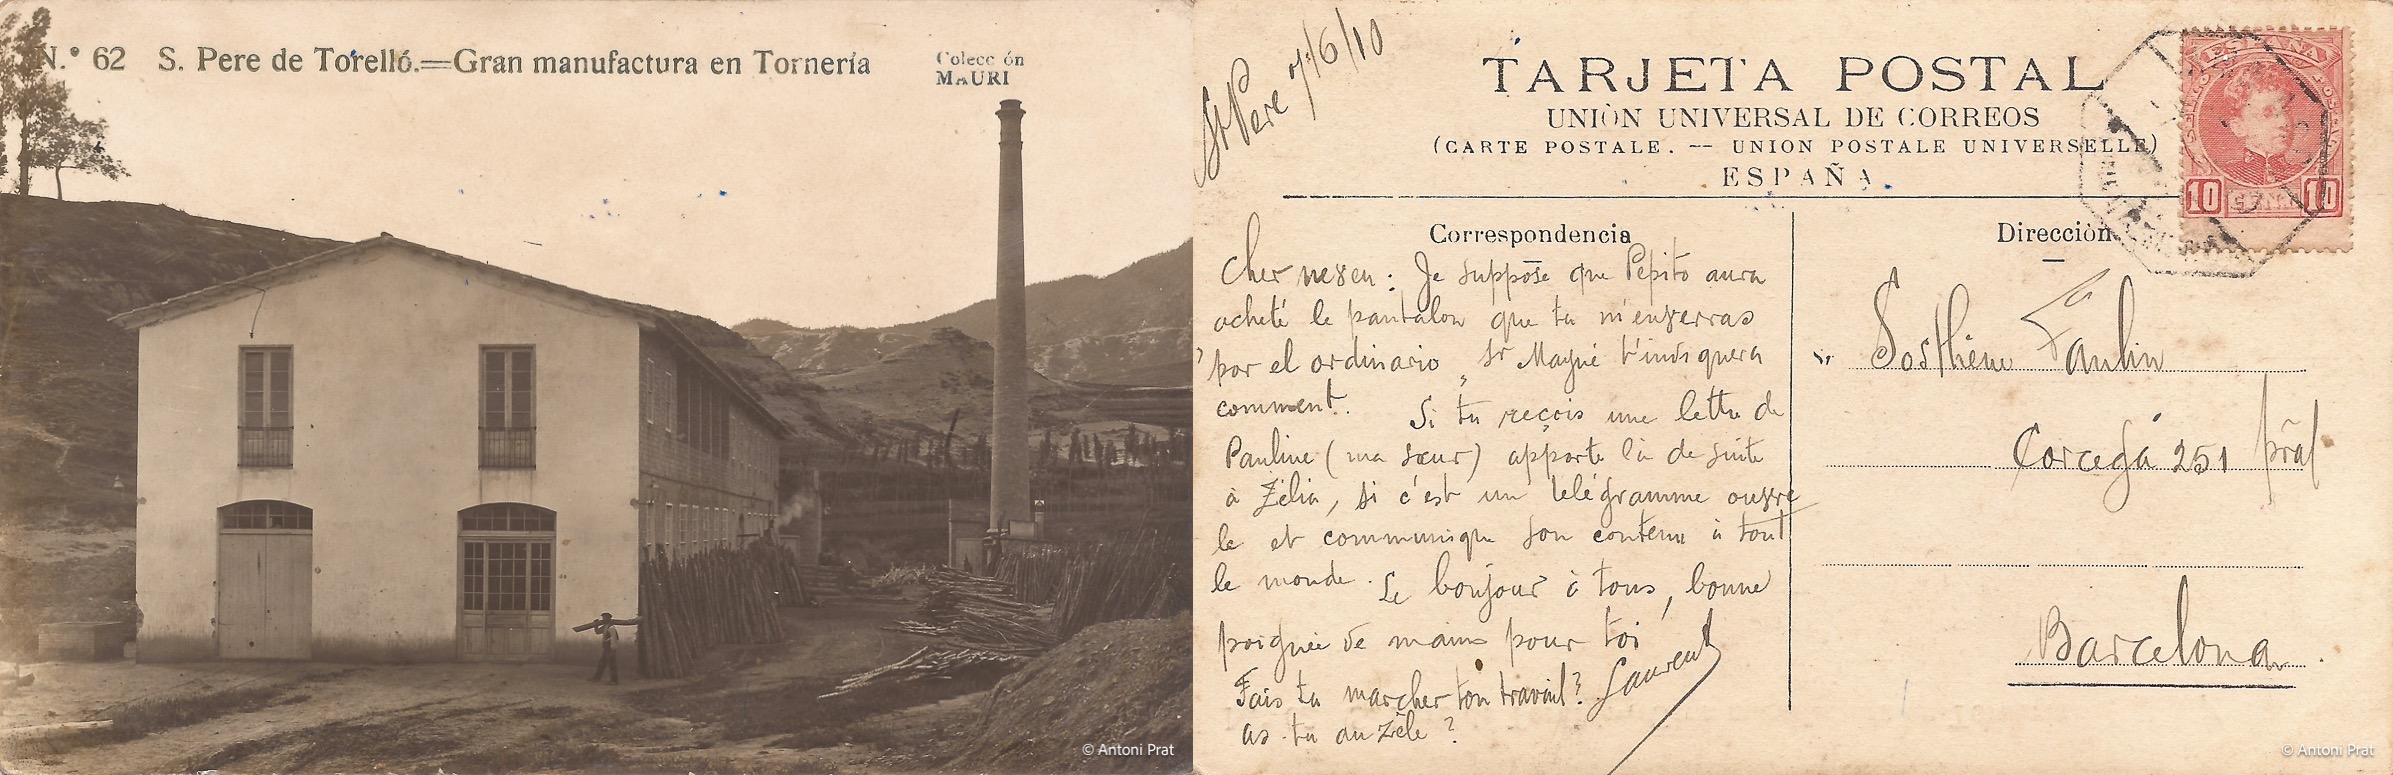 N.º 62 S. Pere de Torelló.=Gran manufactura en Tornería
Colección
MAURI
© Antoni Prat
St Pere 7/6/10
TARJETA POSTAL
UNIÒN UNIVERSAL DE CORREOS
(CARTE POSTALE. -- UNION POSTALE UNIVERSELLE)
ESPAÑA
ESPAÑA
10 CENT. 10
Correspondencia
Cher neveu : Je suppose que Pepito aura
acheté le pantalon que tu m'enverras
por el ordinario, Sr Magné t'indiquera
comment. Si tu reçois une lettre de
Pauline (ma sœur) apporte la de suite
à Zélia, si c'est un télégramme ouvre
le et communique son contenu à tout
le monde. Le bonjour à tous, bonne
poignée de mains pour toi
Fais tu marcher ton travail? Laurent
as-tu du zèle ?
Dirección
Sr. Sosthène Faulin
Corcega 251 pral
Barcelona
© Antoni Prat